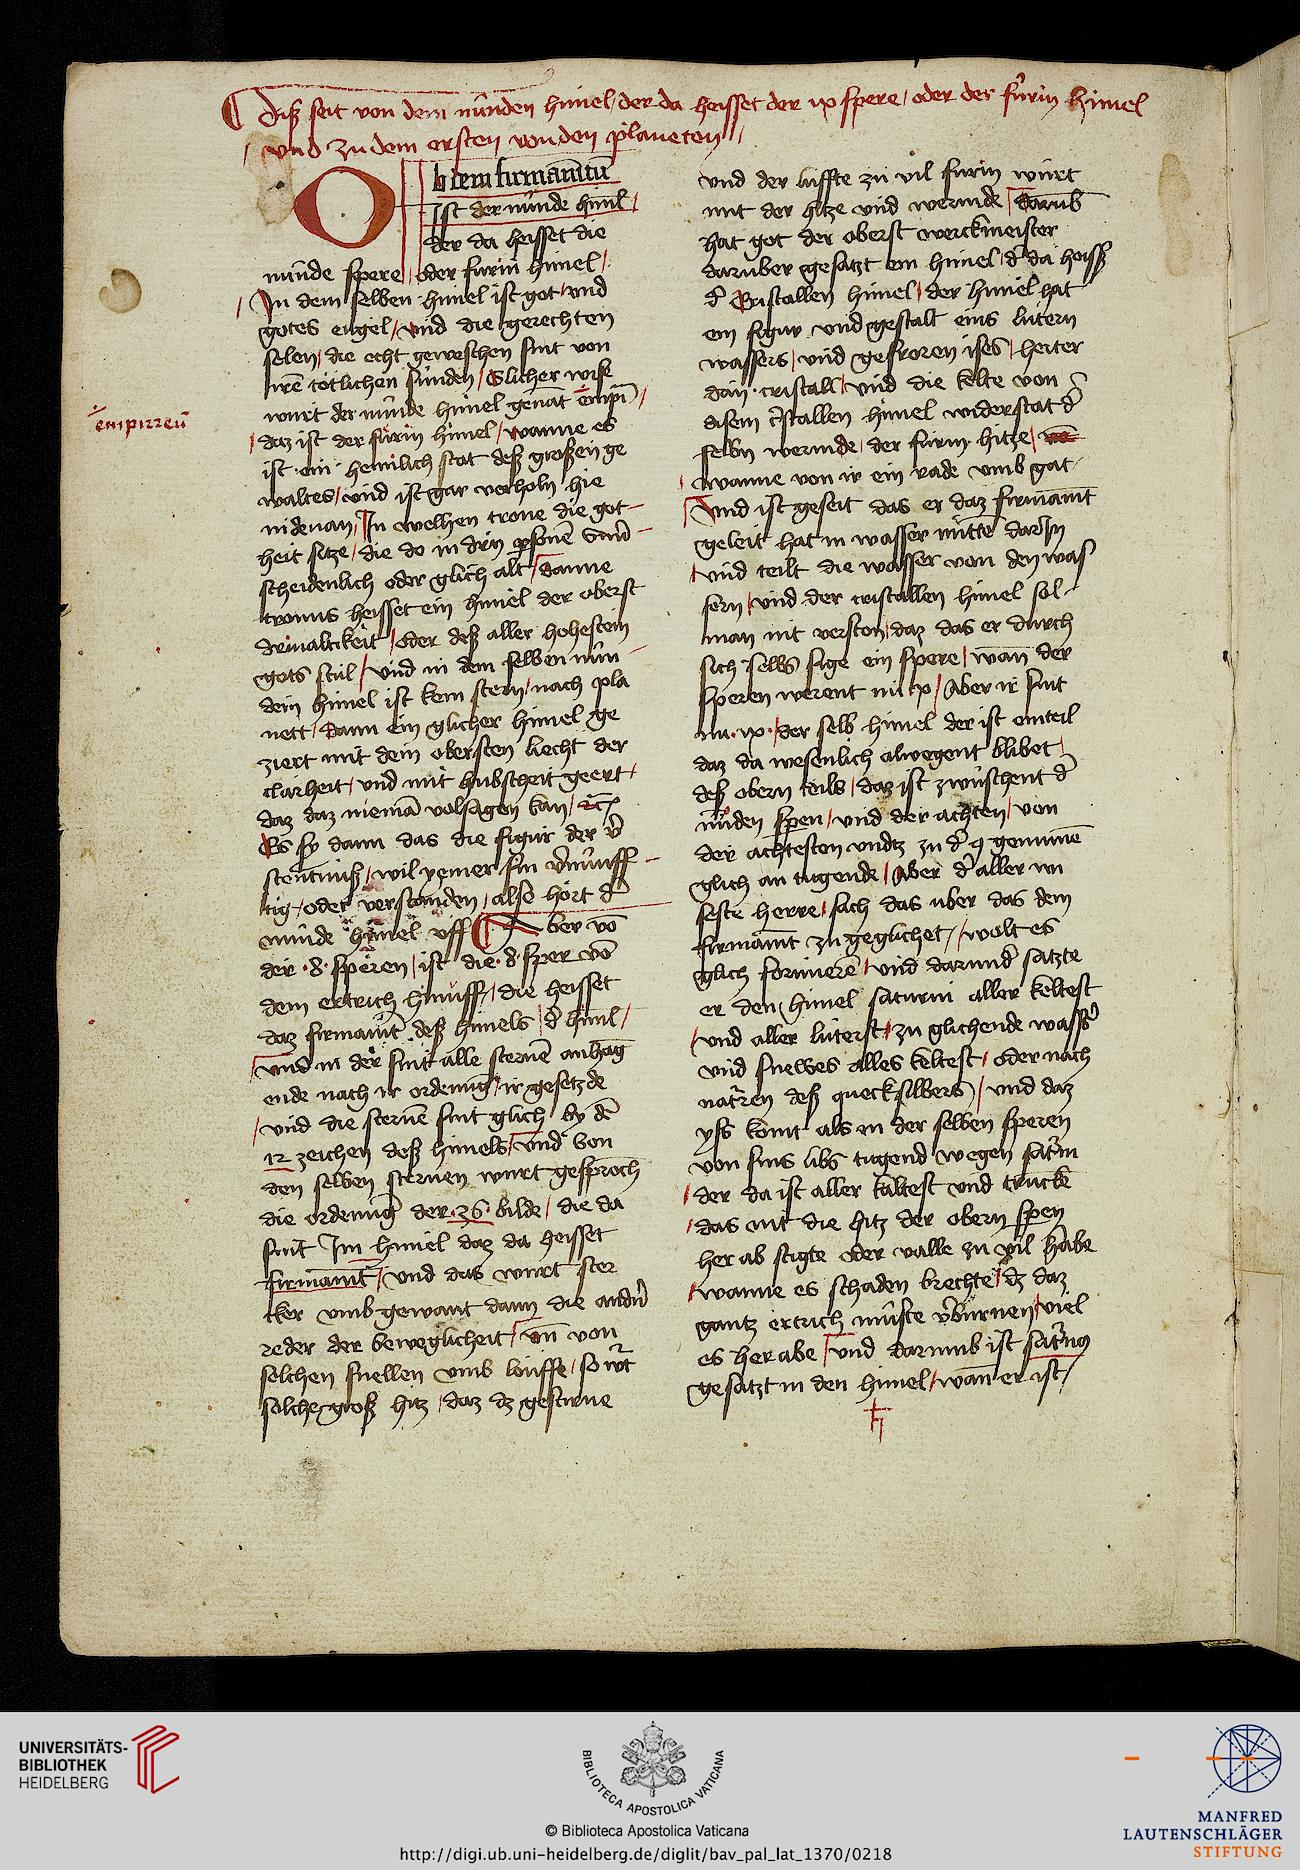 Diß seit von dem nünden himel / der da heisset der ix spere / oder der fürin himel
und zu dem ersten von den planeten
Ob dem firmamētū
Ist der nünde himl /
der da heisset die
nünde spere / oder fürin himel /
In dem selben himel ist got und
gotes engel / und die gerechten
selen / die echt geweschen sint von
iren tötlichen sünden / Glicher wise
wurt der nünde himel genāt empi /
empirreū
daz ist der fürin himel / wanne es
ist ein heimlich stat deß großen ge
waltes / und ist gar verholn hie
nidenan / In welhen trone die got
heit sitze / die do in drin
scheidenlich oder glich alt / Danne
tronus heisset ein himel der oberst
oder deß aller hohesten
gots stůl / und in dem selben nün
den himel ist kein stern / nach pla
nett / Dann ein glicher himel ge
ziert mit dem obersten liecht der
clarheit / und mit hubscheit geert /
daz daz niemā volsagen kan /
Es sy dann das die figur der v̄
stentniß / wil yemer sin v̄nünff
tig / oder verstanden / also hört d̄
nünde himel uff Aber vō
der .8. speren / ist die .8. sper vō
dem ertrich hinuff / die heisset
daz firmam̄t deß himels / d̄ himl /
und in der sint alle sternē anhāg
ende nach ir ordenūg / ir gesetzde
/ und die sternē sint glich by dē
12 zeichen deß himels / und von
den selben sternen wurt gesproch̄
die ordenūg der .36. bilde / die da
sint Im himel daz da heisset
firmam̄t / und das wurt ster
cker umbgewant dann die and̄n
reder der beweglicheit / un̄ von
solchen snellen umb löuffe / so wt
solche groß hitz / daz dz gestirne
und der luffte zu vil fürin würt
mit der hitze und wermde / darūb
hat got der oberst werckmeister
darüber gesatzt ein himel / d̄ da heiss
d̄ Cristallen himel / der himel hat
ein figur und gestalt eins lutern
wassers / und gefroren ises / herter
dan cristall / und die kelte von
disem cristallen himel widerstat d̄
selbn wermde / der fürin hitze /
wanne von ir ein rade umb gat
Und ist geseit das er daz firmam̄t
geleit hat in wasser mittē dar In
/ und teilt die wasser von den was
sern / und der cristallen himel sol
man nit verston / daz das er durch
sich selbs sige ein spere / wan der
speren werent nit x / Aber ir sint
nū ix / der selb himel der ist einteil
daz da wesenlich alwegent blibet /
deß obern teils / daz ist zwüschent d̄
nünden spen / und der achten / von
der achtesten undtz zu d̄ 9 genum̄e
glich an tugende / Aber d̄ aller wi
seste herre / sach das uber das dem
firmam̄t zu geglichet / wolt es
glich formierē / und darund̄ satzte
er den himel saturni aller keltest
/ und aller luterst / zu glichende wass̄
und snewes alles keltest / oder nach
naturen deß quecksilbers / und daz
yß komt als in der selben speren
von sins libs tugend wegen satn̄i
/ der da ist aller kaltest und trucke
/ das nit die hitz der obern spen
her ab stigte oder valle zu vil habe
/ wanne es schaden brechte / dz daz
gantz ertrich müste v̄bürnen / viel
es her abe / und darumb ist sat̄nꝯ
gesatzt in den himel / wan er ist /
♄
UNIVERSITÄTS-
BIBLIOTHEK
HEIDELBERG
BIBLIOTECA APOSTOLICA VATICANA
© Biblioteca Apostolica Vaticana
http://digi.ub.uni-heidelberg.de/diglit/bav_pal_lat_1370/0218
MANFRED
LAUTENSCHLÄGER
STIFTUNG